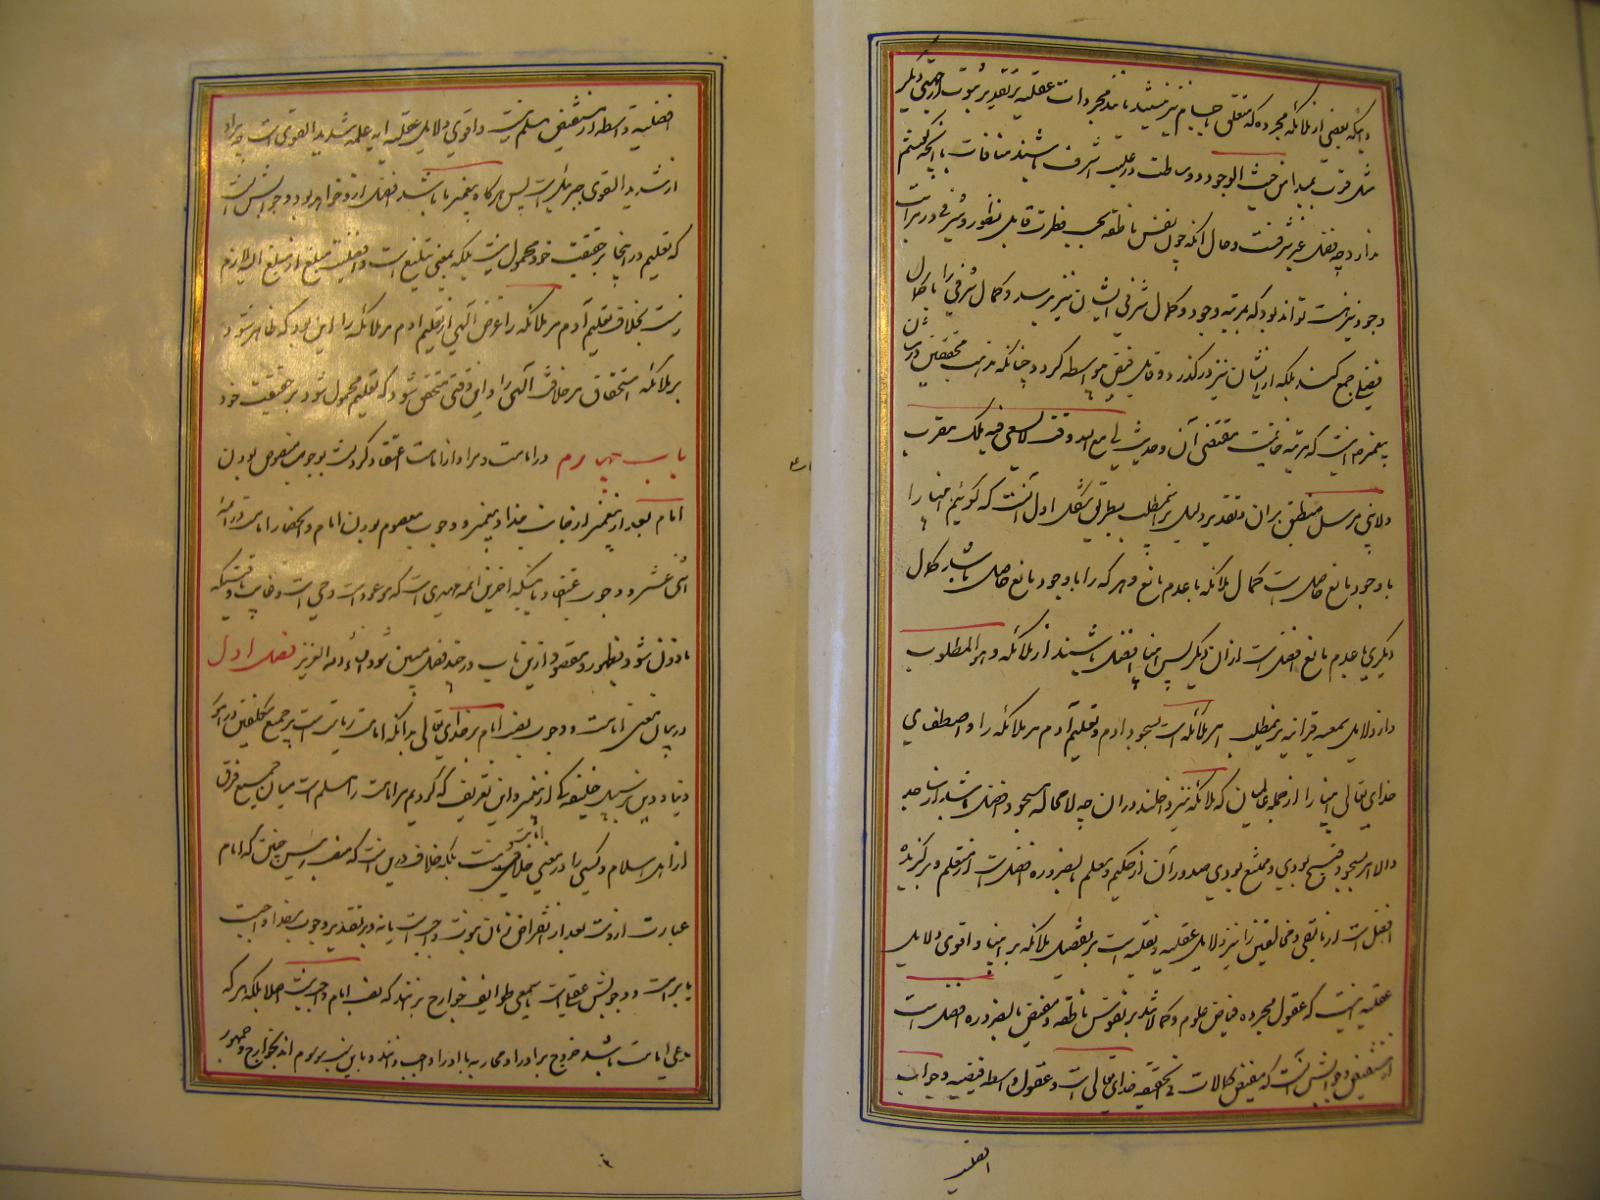 و اینکه بعضی از ملائکه مجرده که متعلق باجسام نیز نیستند مانند مجردات عقلیه بر تقدیر ثبوت از جهتی دیگر
مثل قرب بمبدا من حیث الوجود و وساطت در علیت اشرف باشند منافات با آنچه گفتیم
ندارد چه فضل غیر شرفست و حال آنکه چون نفس ناطقه بحسب فطرت قابل تطور و ترقی در مراتب
وجود نیز هست تواند بود که بمرتبه وجود و کمال شرفی ایشان نیز برسد و کمال شرفی را با کمال
فضلی جمع کند بلکه از ایشان نیز در گذرد و قابل فیض بیواسطه گردد چنانکه مذهب محققین در شان
پیغمبر ما اینست که مرتبه خاتمیت مقتضی آن و حدیث لی مع الله وقت لا یسعنی فیه ملک مقرب
ولا نبی مرسل منطبق بران و تقدیر دلیل بر اینمطلب بطریق شکل اول آنست که گوئیم انبیا را
با وجود مانع حاصل است کمال ملائکه با عدم مانع و هر که را با وجود مانع حاصل باشد کمال
دیگری با عدم مانع افضل است از آن دیگر پس انبیا افضل باشند از ملائکه و هو المطلوب
و از دلایل سمعیه قرآنیه بر اینمطلب امر ملائکه است بسجود آدم و تعلیم آدم مر ملائکه را و اصطفای
خدای تعالی انبیا را از جمله عالمیان که ملائکه نیز داخلند در ان چه لا محاله مسجود افضل باشد از ساجد
و الا امر بسجود قبیح بودی و ممتنع بودی صدور آن از حکیم و معلم بالضروره افضل است از متعلم و برگزیده
افضل است از باقی و مخالفین را نیز دلایل عقلیه و نقلیه است بر تفضیل ملائکه بر انبیا و اقوی دلایل
عقلیه اینست که عقول مجرده فیاض علوم و کمالاتند بر نفوس ناطقه و مفیض بالضروره افضل است
از مستفیض و جوابش آنست که مفیض کمالات فی الحقیقه خدای تعالی است و عقول واسطه فیضند و جواب
افضلیه
افضلیه واسطه از مستفیض مسلم نیست و اقوی دلایل نقلیه آیه علمه شدید القوی است چه مراد
از شدید القوی جبرئیل است پس هرگاه پیغمبر ما باشد افضل ازو خواهد بود و جوابش آنست
که تعلیم در اینجا بر حقیقت خود محمول نیست بلکه بمعنی تبلیغ است و افضلیت مبلغ از مبلغ الیه لازم
نیست بخلاف تعلیم آدم مر ملائکه را غرض الهی از تعلیم آدم مر ملائکه را این بود که ظاهر شود
بر ملائکه استحقاق مر خلافت الهی را و این وقتی متحقق شود که تعلیم محمول شود بر حقیقت خود
باب سیم در امامت و مراد از امامت اعتقاد کردنست بوجوب منصوص بودن
امام بعد از پیغمبر از جانب خدا و پیغمبر و وجوب معصوم بودن امام و انحصار امامت در ائمه
اثنی عشر و وجوب اعتقاد باینکه آخرین ائمه مهدی است که موعود است و حی است و غایب تا وقتیکه
ماذون شود بظهور و مقصود ازین باب در چند فصل مبین شود انشاء الله العزیز فصل اول
در بیان معنی امامت و وجوب نصب امام بر خدای تعالی بدانکه امامت ریاست است بر جمیع مکلفین در امور
دنیا و دین بر سبیل خلیفگی از پیغمبر و این تعریف که کردیم مر امامت را مسلم است میان جمیع فرق
از اهل اسلام و کسی را در معنی امامت خلافی نیست بلکه خلاف درین است که منصب چنین که امام
عبارت ازوست بعد از انقراض زمان نبوت واجبست یا نه و بر تقدیر وجوب بر خدا واجبست
یا بر امت و وجوبش عقلیست یا سمعی طوایف خوارج بر آنند که نصب امام واجب نیست اصلا بلکه هر که
مدعی امامت باشد خروج بر او را و محاربه با او را واجب دانند و باین سبب موسوم اند بخوارج و جمهور